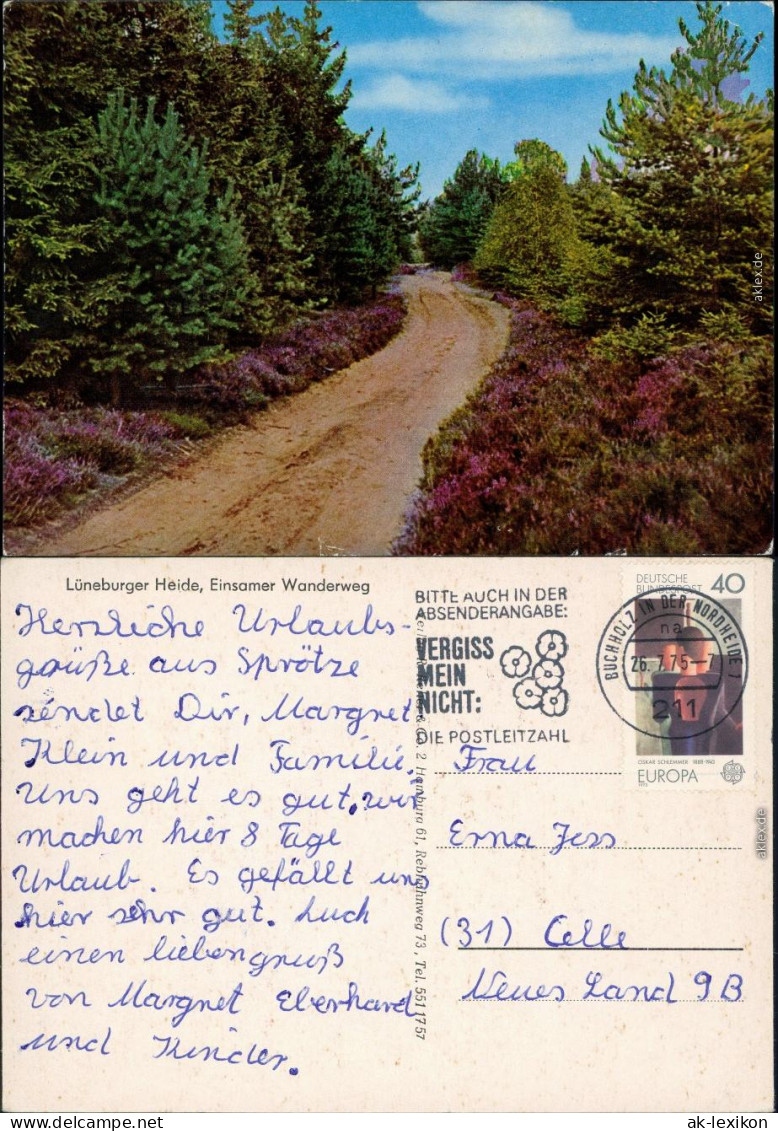 aklex.de
Lüneburger Heide, Einsamer Wanderweg
Herzliche Urlaubs-
grüße aus Sprötze
sendet Dir, Margret
Klein und Familie.
Uns geht es gut. wir
machen hier 8 Tage
Urlaub. Es gefällt uns
hier sehr gut. Auch
einen liebengruß
von Margret Eberhard
und Kinder.
2 Hamburg 61, Rebhuhnweg 73, Tel. 5511757
BITTE AUCH IN DER
ABSENDERANGABE:
VERGISS
MEIN
NICHT:
DIE POSTLEITZAHL
DEUTSCHE
BUNDESPOST 40
OSKAR SCHLEMMER 1888-1943
EUROPA
1975
BUCHHOLZ IN DER NORDHEIDE 1
na
26.7.75-7
211
Frau
Erna Jess
(31) Celle
Neues Land 9B
aklex.de
ak-lexikon